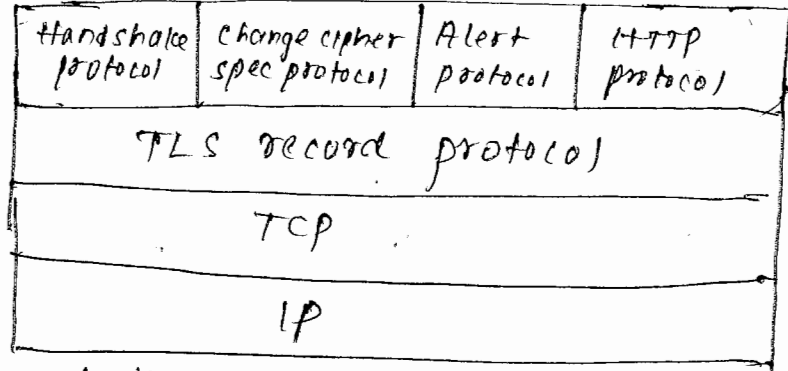 Handshake protocol
change cipher spec protocol
Alert protocol
HTTP protocol
TLS record protocol
TCP
IP